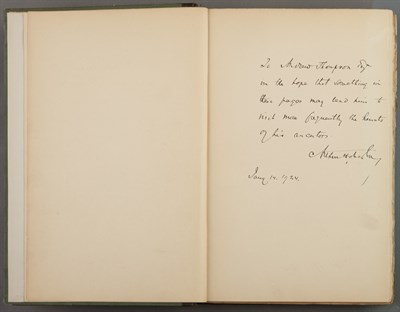 To Andrew Thompson Esqre
in the hope that something in
these pages may lead him to
visit more frequently the haunts
of his ancestors
Jany 14. 1924